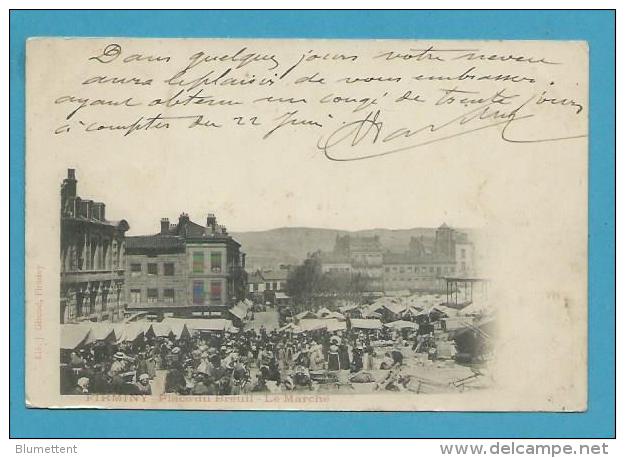 Dans quelques jours votre neveu
aura le plaisir de vous embrasser
ayant obtenu un congé de trente jours
à compter du 22 Juin
Lib. J. Firminy
FIRMINY - Place du Breuil - Le Marché
Blumettent
www.delcampe.net